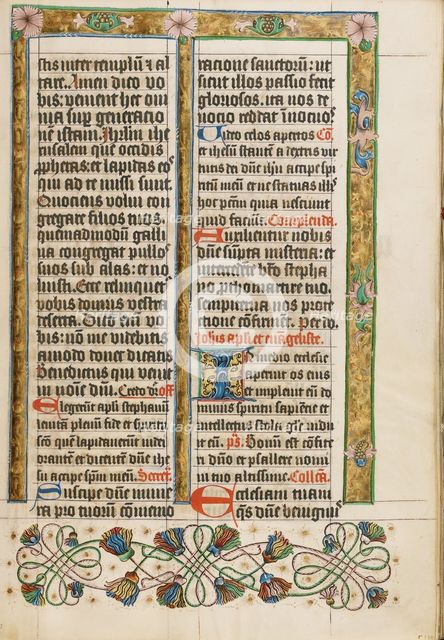 stis inter templū & al
tare. Amen dico vo
bis: venient hec om
nia sup generatione
nē istam. Ihrlm ihe
rusalem que occidis
prophetas: et lapidas eos
qui ad te missi sunt.
Quociens volui con
gregare filios tuos.
quemadmodū galli
na congregat pullos
suos sub alas: et no
luisti. Ecce relinquet
vobis domus vestra
deserta. Dico em̄ vo
bis: nō me videbitis
amodo donec dicatis
Benedictus qui venit
in noīe dn̄i. Credo
Elegerūt apli stephanum
levitā plenū fide et spiritu
scō quē lapidauerūt iudei
orātem et dicentem dn̄e ihe
accipe spm̄ meū. Secret.
Suscipe dn̄e mune
ra pro tuorū cōmemo
racione sanctorū: ut
sicut illos passio fecit
gloriosos. ita nos de
uocio reddat inocuos
Video celos apertos Cō.
et ihesū stantē a dextris vir
tutis dei dn̄e ihū accipe spi
ritū meū et ne statuas illis
hoc peccatū quia nesciunt
quid faciūt. Complenda.
Auxilientur nobis
dn̄e sūpta misteria: et
intercedente bt̄o stepha
no prothomartire tuo.
sempiterna nos prote
ctione cōfirment. Per do.
Johīs apli et euāgeliste.
In medio ecclesie
aperuit os eius
et impleuit eū do
minus spiritu sapiencie et
intellectus stola glorie indu
it eū. ps. Bonū est cōfite
ri dn̄o et psallere nomi
ni tuo altissime. Collcā.
Ecclesiam tuam
qs dn̄e benignus